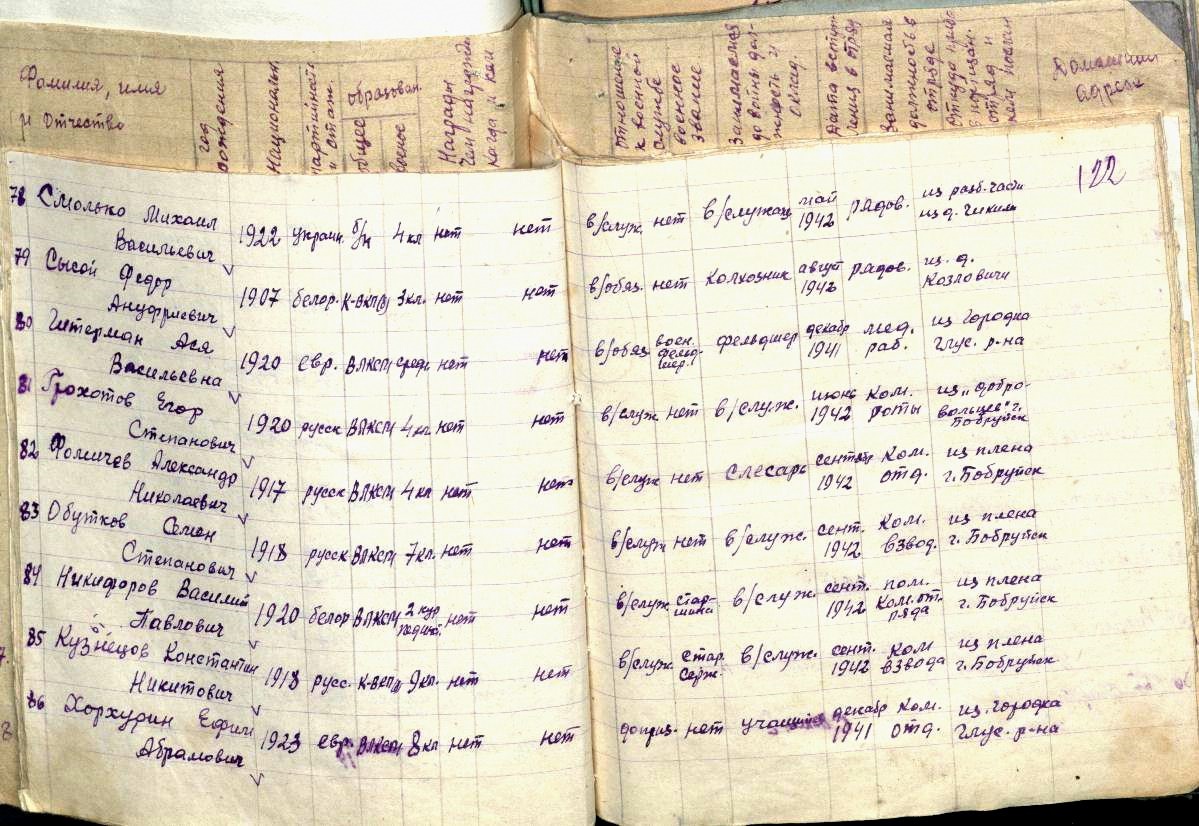 Фамилия, имя и Отчество
год рождения
Национальн
партийность и стаж
образован.
общее
военное
Награды
когда и кем
отношение к военной службе
военное звание
Занимаемая до войны должность и оклад
Дата вступления в отряд
Занимаемая должность в отряде
Домашний адрес
122
78 Смолько Михаил Васильевич 1922 украин. б/п 4 кл нет нет в/служ. нет в/служащ май 1942 рядов. из разб. части из д. Чикили
79 Сысой Федор Ануфриевич 1907 белор. К-ВКП/б 3 кл. нет нет в/обяз. нет колхозник август 1942 рядов. из д. Козловичи
80 Гитерман Ася Васильевна 1920 евр. ВЛКСМ средн нет нет в/обяз. воен. фельдшер. фельдшер декабр 1941 мед. раб. из Городка Глус. р-на
81 Грохотов Егор Степанович 1920 русск ВЛКСМ 4 кл нет нет в/служ нет в/служ. июнь 1942 ком. роты из „добровольцев" г. Бобруйск
82 Фомичов Александр Николаевич 1917 русск ВЛКСМ 4 кл нет нет в/служ нет слесарь сентябр 1942 ком. отд. из плена г. Бобруйск
83 Обутков Семен Степанович 1918 русск ВЛКСМ 7 кл. нет нет в/служ нет в/служ. сент. 1942 ком. взвод. из плена г. Бобруйск
84 Никифоров Василий Павлович 1920 белор ВЛКСМ 2 кур нет нет в/служ старшина в/служ. сент. 1942 пом. ком. отряда из плена г. Бобруйск
85 Кузнецов Константин Никитович 1918 русс. К-ВКП/б 9 кл. нет нет в/служ стар. серж. в/служ. сент. 1942 ком взвода из плена г. Бобруйск
86 Хорхурин Ефим Абрамович 1923 евр. ВЛКСМ 8 кл нет нет доприз. нет учащийся декабр 1941 ком. отд. из городка Глус. р-на